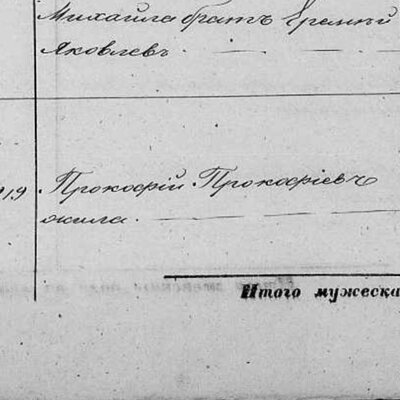 Михайла братъ Еремей
Яковлевъ.
919 Прокофій Прокофіевъ
окила.
Итого мужеска